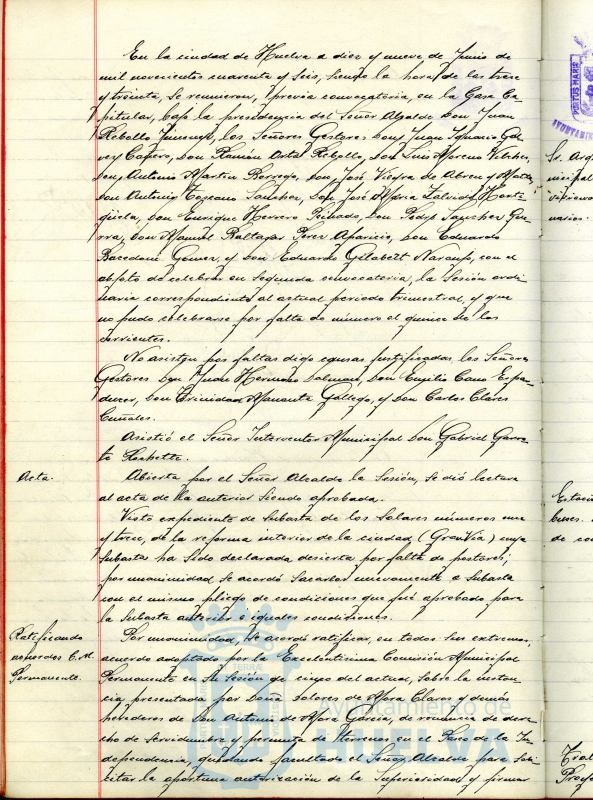 En la ciudad de Huelva a diez y nueve de Junio de
mil novecientos cuarenta y seis, siendo la hora de las trece
y treinta, se reunieron, previa convocatoria en la Casa Ca-
pitular, bajo la presidencia del Señor Alcalde Don Juan
Rebollo Jimenez, los Señores Gestores Don Juan Ignacio Gál-
vez Cañero, Don Ramón Artal Rebollo, Don Luis Moreno Vilches,
Don Antonio Martin Borrego, don José Vieyra de Abreu y Motta,
Don Antonio Toscano Sanchez, Don José Maria Zalvide
Don Enrique Herrero Don Pedro Sanchez Gue-
rra, Don Manuel Baltazar Perez Aparicio, Don Eduardo
Gomez, y Don Eduardo Gilabert Naranjo, con el
objeto de celebrar en segunda convocatoria, la Sesión ordi-
naria correspondiente al actual periodo trimestral, y que
no pudo celebrarse por falta de número el quince de los
corrientes.
No asisten por faltas digo causas justificadas los Señores
Gestores Don Juan Hermoso Don Emilio Cano Espa-
Don Trinidad Gallego, y Don Carlos Clares
Asistió el Señor Interventor Municipal Don Gabriel Garra-
Acta.
Abierta por el Señor Alcalde la Sesión, se dió lectura
al acta de la anterior siendo aprobada.
Visto expediente de Subasta de los Solares números once
y trece, de la reforma interior de la ciudad (Gran Via) cuya
Subasta ha sido declarada desierta por falta de postores;
por unanimidad, se acordó sacarlos nuevamente a Subasta
con el mismo pliego de condiciones que fué aprobado para
la Subasta anterior e iguales condiciones.
Ratificando
acuerdos C.M.
Permanente.
Por unanimidad, se acordó ratificar, en todos sus extremos,
acuerdo adoptado por la Excelentisima Comisión Municipal
Permanente en su Sesión de cinco del actual, sobre la instan-
cia presentada por Doña Dolores de Mora Claros y demás
herederos de Don Antonio de Mora Garcia, de renuncia de dere-
cho de servidumbre y permuta de terrenos en el Paseo de la In-
dependencia, quedando facultado el Señor Alcalde para soli-
citar la oportuna autorización de la Superioridad y firmar
Ayuntamiento de
HUELVA